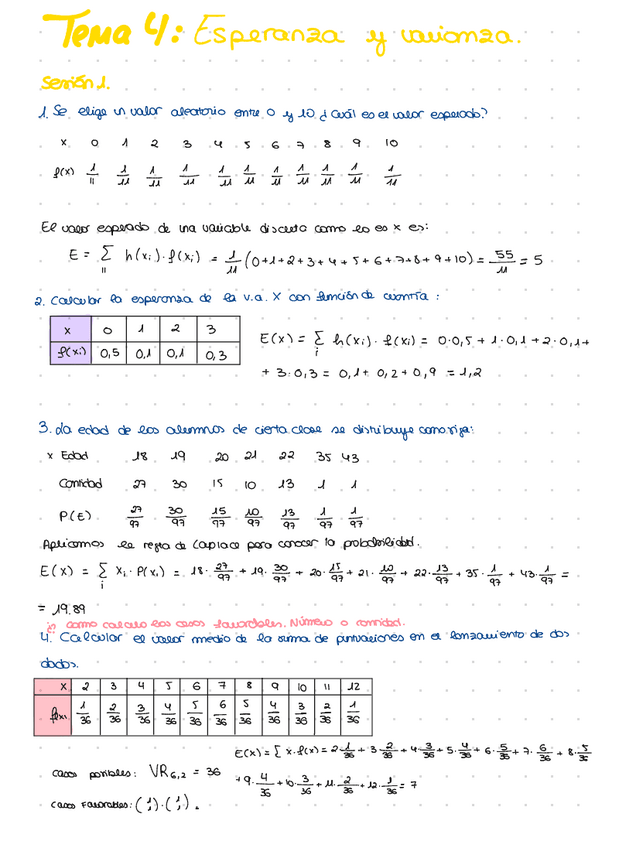 Tema 4: Esperanza y varianza.
Sesión 1.
1. Se elige un valor aleatorio entre 0 y 10 ¿Cuál es el valor esperado?
x 0 1 2 3 4 5 6 7 8 9 10
f(x) 1/11 1/11 1/11 1/11 1/11 1/11 1/11 1/11 1/11 1/11 1/11
El valor esperado de una variable discreta como lo es x es:
E = Σ h(xi) · f(xi) = 1/11 (0+1+2+3+4+5+6+7+8+9+10) = 55/11 = 5
2. Calcular la esperanza de la v.a. X con función de cuantía :
x 0 1 2 3
f(xi) 0,5 0,1 0,1 0,3
E(x) = Σi h(xi) · f(xi) = 0·0,5 + 1·0,1 + 2·0,1+
+ 3·0,3 = 0,1+ 0,2+0,9 = 1,2
3. La edad de los alumnos de cierta clase se distribuye como sigue:
x Edad 18 19 20 21 22 35 43
Cantidad 27 30 15 10 13 1 1
P(E) 27/97 30/97 15/97 10/97 13/97 1/97 1/97
Aplicamos la regla de Laplace para conocer la probabilidad.
E(x) = Σi xi · P(xi) = 18· 27/97 + 19· 30/97 + 20· 15/97 + 21· 10/97 + 22· 13/97 + 35· 1/97 + 43· 1/97 =
= 19,89
¿? como calculo los casos favorables. Número o cantidad.
4. Calcular el valor medio de la suma de puntuaciones en el lanzamiento de dos
dados.
x 2 3 4 5 6 7 8 9 10 11 12
f(xi) 1/36 2/36 3/36 4/36 5/36 6/36 5/36 4/36 3/36 2/36 1/36
E(x) = Σ x·f(x) = 2· 1/36 + 3· 2/36 + 4· 3/36 + 5· 4/36 + 6· 5/36 + 7· 6/36 + 8· 5/36
+9· 4/36 + 10· 3/36 + 11· 2/36 + 12· 1/36 = 7
casos posibles: VR6,2 = 36
casos favorables: (1 1) · (1 1) .